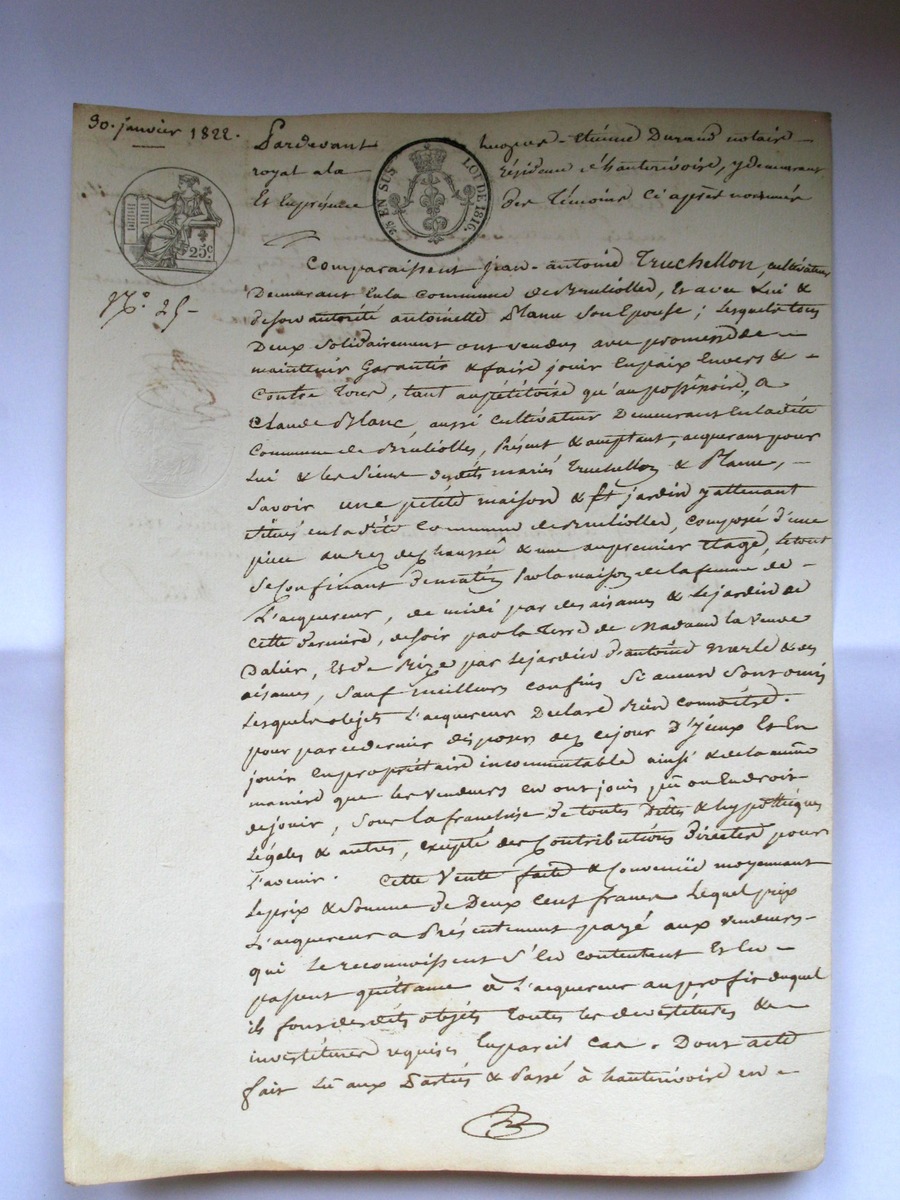 30. janvier 1822.
Pardevant hugues-Etienne Durand notaire
royal a la résidence d'hauterivoire, y demeurant
Et En présence des Témoins Ci après nommés
25 EN SUS
LOI DE 1816.
25c
N.° 25
Comparaissent jean-antoine Truchellon, cultivateur
Demeurant En la Commune de Brulliolles, Et avec Lui &
de son autorité antoinette Blanc Son Epouse; Lesquels tous
Deux Solidairement ont vendus avec promesse de
maintenir Garantir & faire jouir En paix Envers &
Contre Tous, tant au pétitoire qu'au possessoire, a
Claude Blanc, aussi Cultivateur Demeurant En la dite
Commune de Brulliolles, Présent & acceptant, acquerant pour
Lui & les Siens desdits mariés Truchellon & Blanc,
Savoir une petite maison & jardin y attenant
Situés en la dite Commune de Brulliolles, composée d'une
piece au rez de Chaussée & une au premier Etage, Le tout
Se Confinant de matin par la maison de la femme de
L'acquereur, de midi par des aisances & Le jardin de
Cette derniere, de soir par la Terre de Madame la Veuve
Dalier, Et de Bize par Le jardin d'antoine & des
aisances, Sauf meilleurs confins Si aucun Sont omis
Lesquels objets L'acquereur Declare Bien connoître.
pour par ce dernier disposer dez ce jour D'Iceux Et En
jouir En propriétaire incommutable ainsi & de la même
maniere que les Vendeurs en ont joui pû ou En droit
de jouir, Sous la franchise de toutes Dettes & hypothèques
Légales & autres, excepté des Contributions Directes pour
L'avenir. Cette Vente faite & Convenüe moyennant
Le prix & Somme de Deux Cent francs Lequel prix
L'acquereur a Présentement payé aux Vendeurs
qui Le reconnoissent S'en contentent Et En
passent quittance à L'acquereur au profit duquel
ils font desdits objets Toutes les devestitures &
investitures requises En pareil Cas. Dont acte
fait Lû aux Parties & Passé à hauterivoire en